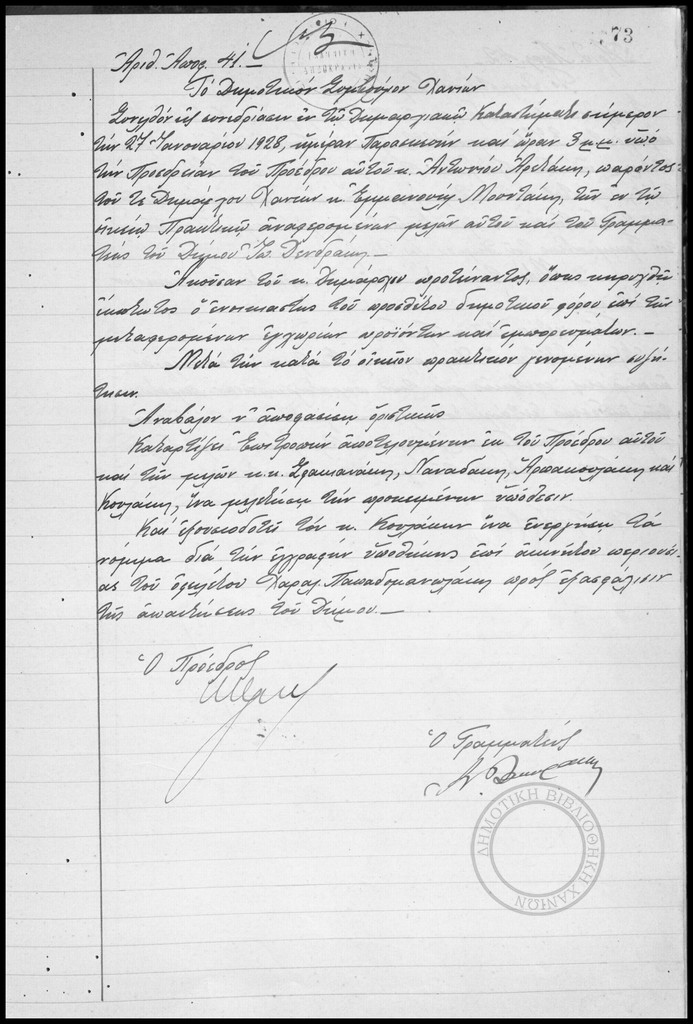 73
Ἀριθ. Ἀποφ. 41. —
Τὸ Δημοτικὸν Συμβούλιον Χανίων
Συνελθὸν εἰς συνεδρίασιν ἐν τῷ Δημαρχιακῷ Καταστήματι σήμερον
τὴν 27 Ἰανουαρίου 1928, ἡμέραν Παρασκευὴν καὶ ὥραν 3 μ.μ. ὑπὸ
τὴν Προεδρείαν τοῦ Προέδρου αὐτοῦ κ. Ἀντωνίου, παρόντος
τοῦ τε Δημάρχου Χανίων κ. Ἐμμανουὴλ Μουντάκη, τῶν ἐν τῷ
οἰκείῳ Πρακτικῷ ἀναφερομένων μελῶν αὐτοῦ καὶ τοῦ Γραμμα-
τέως τοῦ Δήμου Ἰω. Δενδράκη. —
Ἀκοῦσαν τοῦ κ. Δημάρχου προτείναντος, ὅπως κηρυχθῇ
ἔκπτωτος ὁ ἐνοικιαστὴς τοῦ προσθέτου δημοτικοῦ φόρου ἐπὶ τῶν
μεταφερομένων ἐγχωρίων προϊόντων καὶ ἐμπορευμάτων. —
Μετὰ τὴν κατὰ τὸ οἰκεῖον πρακτικὸν γενομένην συζή-
τησιν.
Ἀναβάλον ν' ἀποφασίσῃ ὁριστικῶς
Καταρτίζει Ἐπιτροπὴν ἀποτελουμένην ἐκ τοῦ Προέδρου αὐτοῦ
καὶ τῶν μελῶν κ.κ. Σφακιανάκη, Ναναδάκη, καὶ
Κουλάκη, ἵνα μελετήσῃ τὴν προκειμένην ὑπόθεσιν.
Καὶ ἐξουσιοδοτεῖ τὸν κ. Κουλάκην ἵνα ἐνεργήσῃ τὰ
νόμιμα διὰ τὴν ἐγγραφὴν ὑποθήκης ἐπὶ ἀκινήτου περιουσί-
ας τοῦ ὀφειλέτου Χαραλ. Παπαδομανωλάκη πρὸς ἐξασφάλισιν
τῆς ἀπαιτήσεως τοῦ Δήμου. —
Ὁ Πρόεδρος
Ὁ Γραμματεύς
ΔΗΜΟΤΙΚΗ ΒΙΒΛΙΟΘΗΚΗ ΧΑΝΙΩΝ